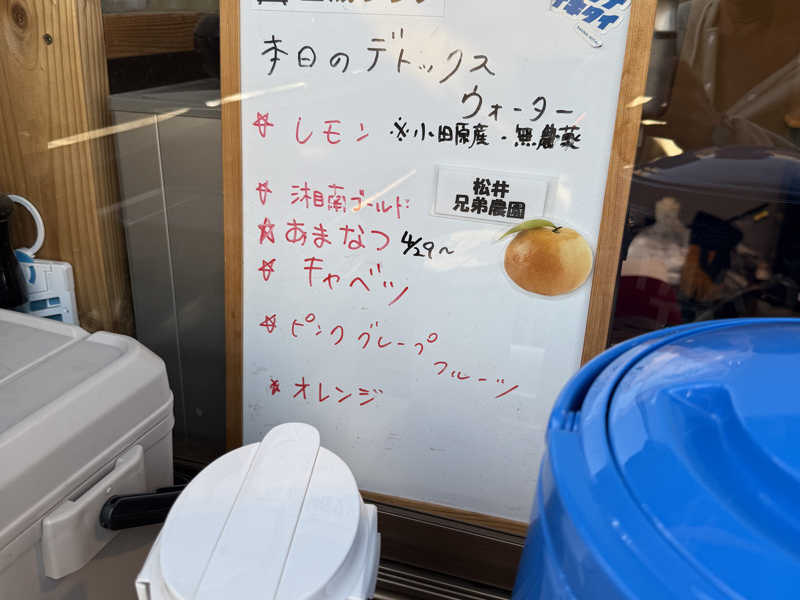 本日のデトックス
ウォーター
☆ レモン ※小田原産・無農薬
☆ 湘南ゴールド
松井
兄弟農園
☆ あまなつ 4/29〜
☆ キャベツ
☆ ピンクグレープ
フルーツ
☆ オレンジ